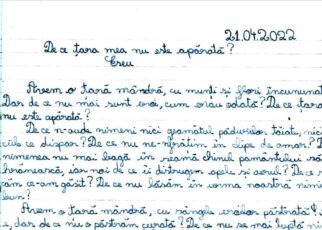 21.04.2022
De ce țara mea nu este apărată?
Eseu
Avem o țară mândră, cu munți și flori încununat
Dar de ce nu mai sunt eroi, cum erau odată? De ce țara
nu este apărată?
De ce n-aude nimeni nici geamătul pădurilor tăiate, nici
cele ce dispar? De ce ne-nfrățim în clipe de amar? D
nimenea nu mai bagă în seamă chinul pământului să
hrănească, iar noi de ce îi distrugem apele și aerul? De s
cum ce-am găsit? De ce nu lăsăm în urma noastră nimi
bun?
Avem o țară mândră, cu sângele eroilor păstrată! Ș
e, dar de ce nu o păstrăm curată? De ce nu se mai luptă ni